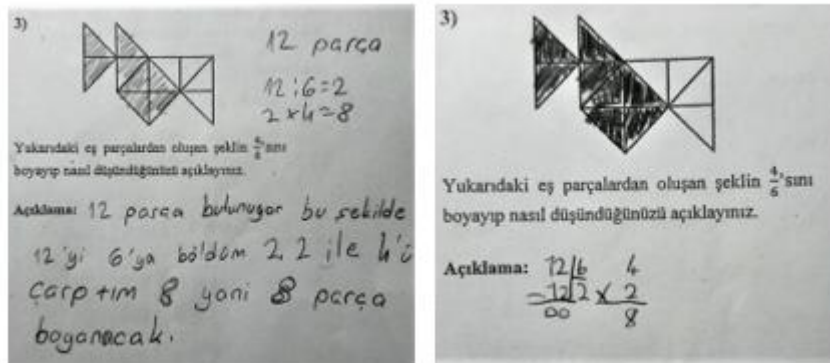 3)
12 parça
12:6=2
2x4=8
Yukarıdaki eş parçalardan oluşan şeklin 4/6'sını
boyayıp nasıl düşündüğünüzü açıklayınız.
Açıklama: 12 parça bulunuyor bu şekilde
12'yi 6'ya böldüm 2 2 ile 4'ü
çarptım 8 yani 8 parça
boyanacak.
3)
Yukarıdaki eş parçalardan oluşan şeklin 4/6'sını
boyayıp nasıl düşündüğünüzü açıklayınız.
Açıklama: 12 6 4
-12 2 x 2
00 8